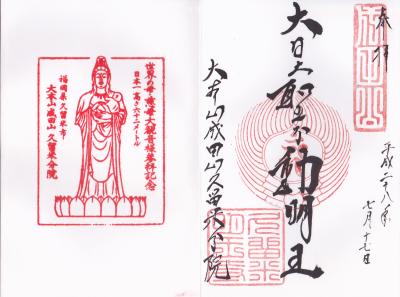 奉拝
大日大聖不動明王
大本山成田山久留米分院
平成二十八年
七月十七日
世界の母・慈母大観音様参拝記念
日本一高さ六十二メートル
福岡県久留米市
大本山成田山久留米分院